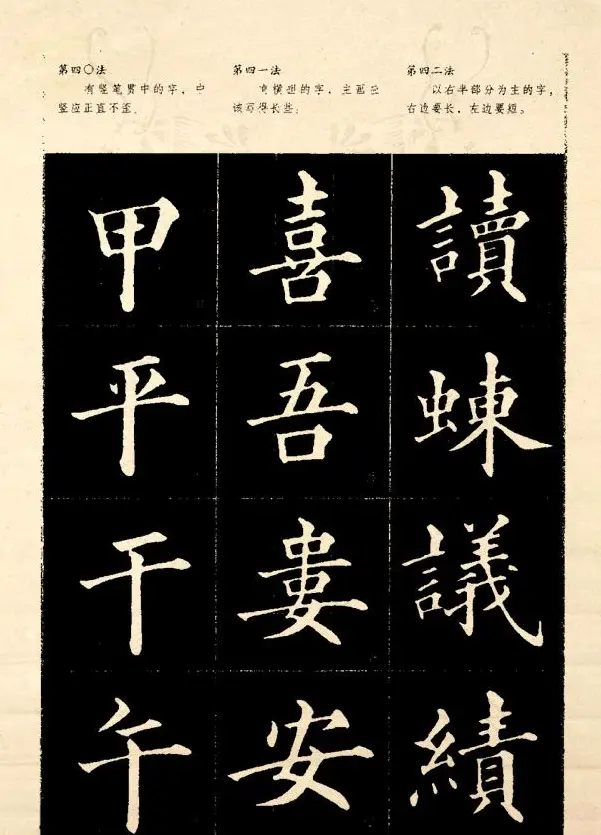 第四〇法
有竖笔贯中的字，中
竖应正直不歪。
第四一法
有横画的字，主画应
该写得长些。
第四二法
以右半部分为主的字，
右边要长，左边要短。
甲 喜 讀
平 吾 蝀
干 婁 議
午 安 績